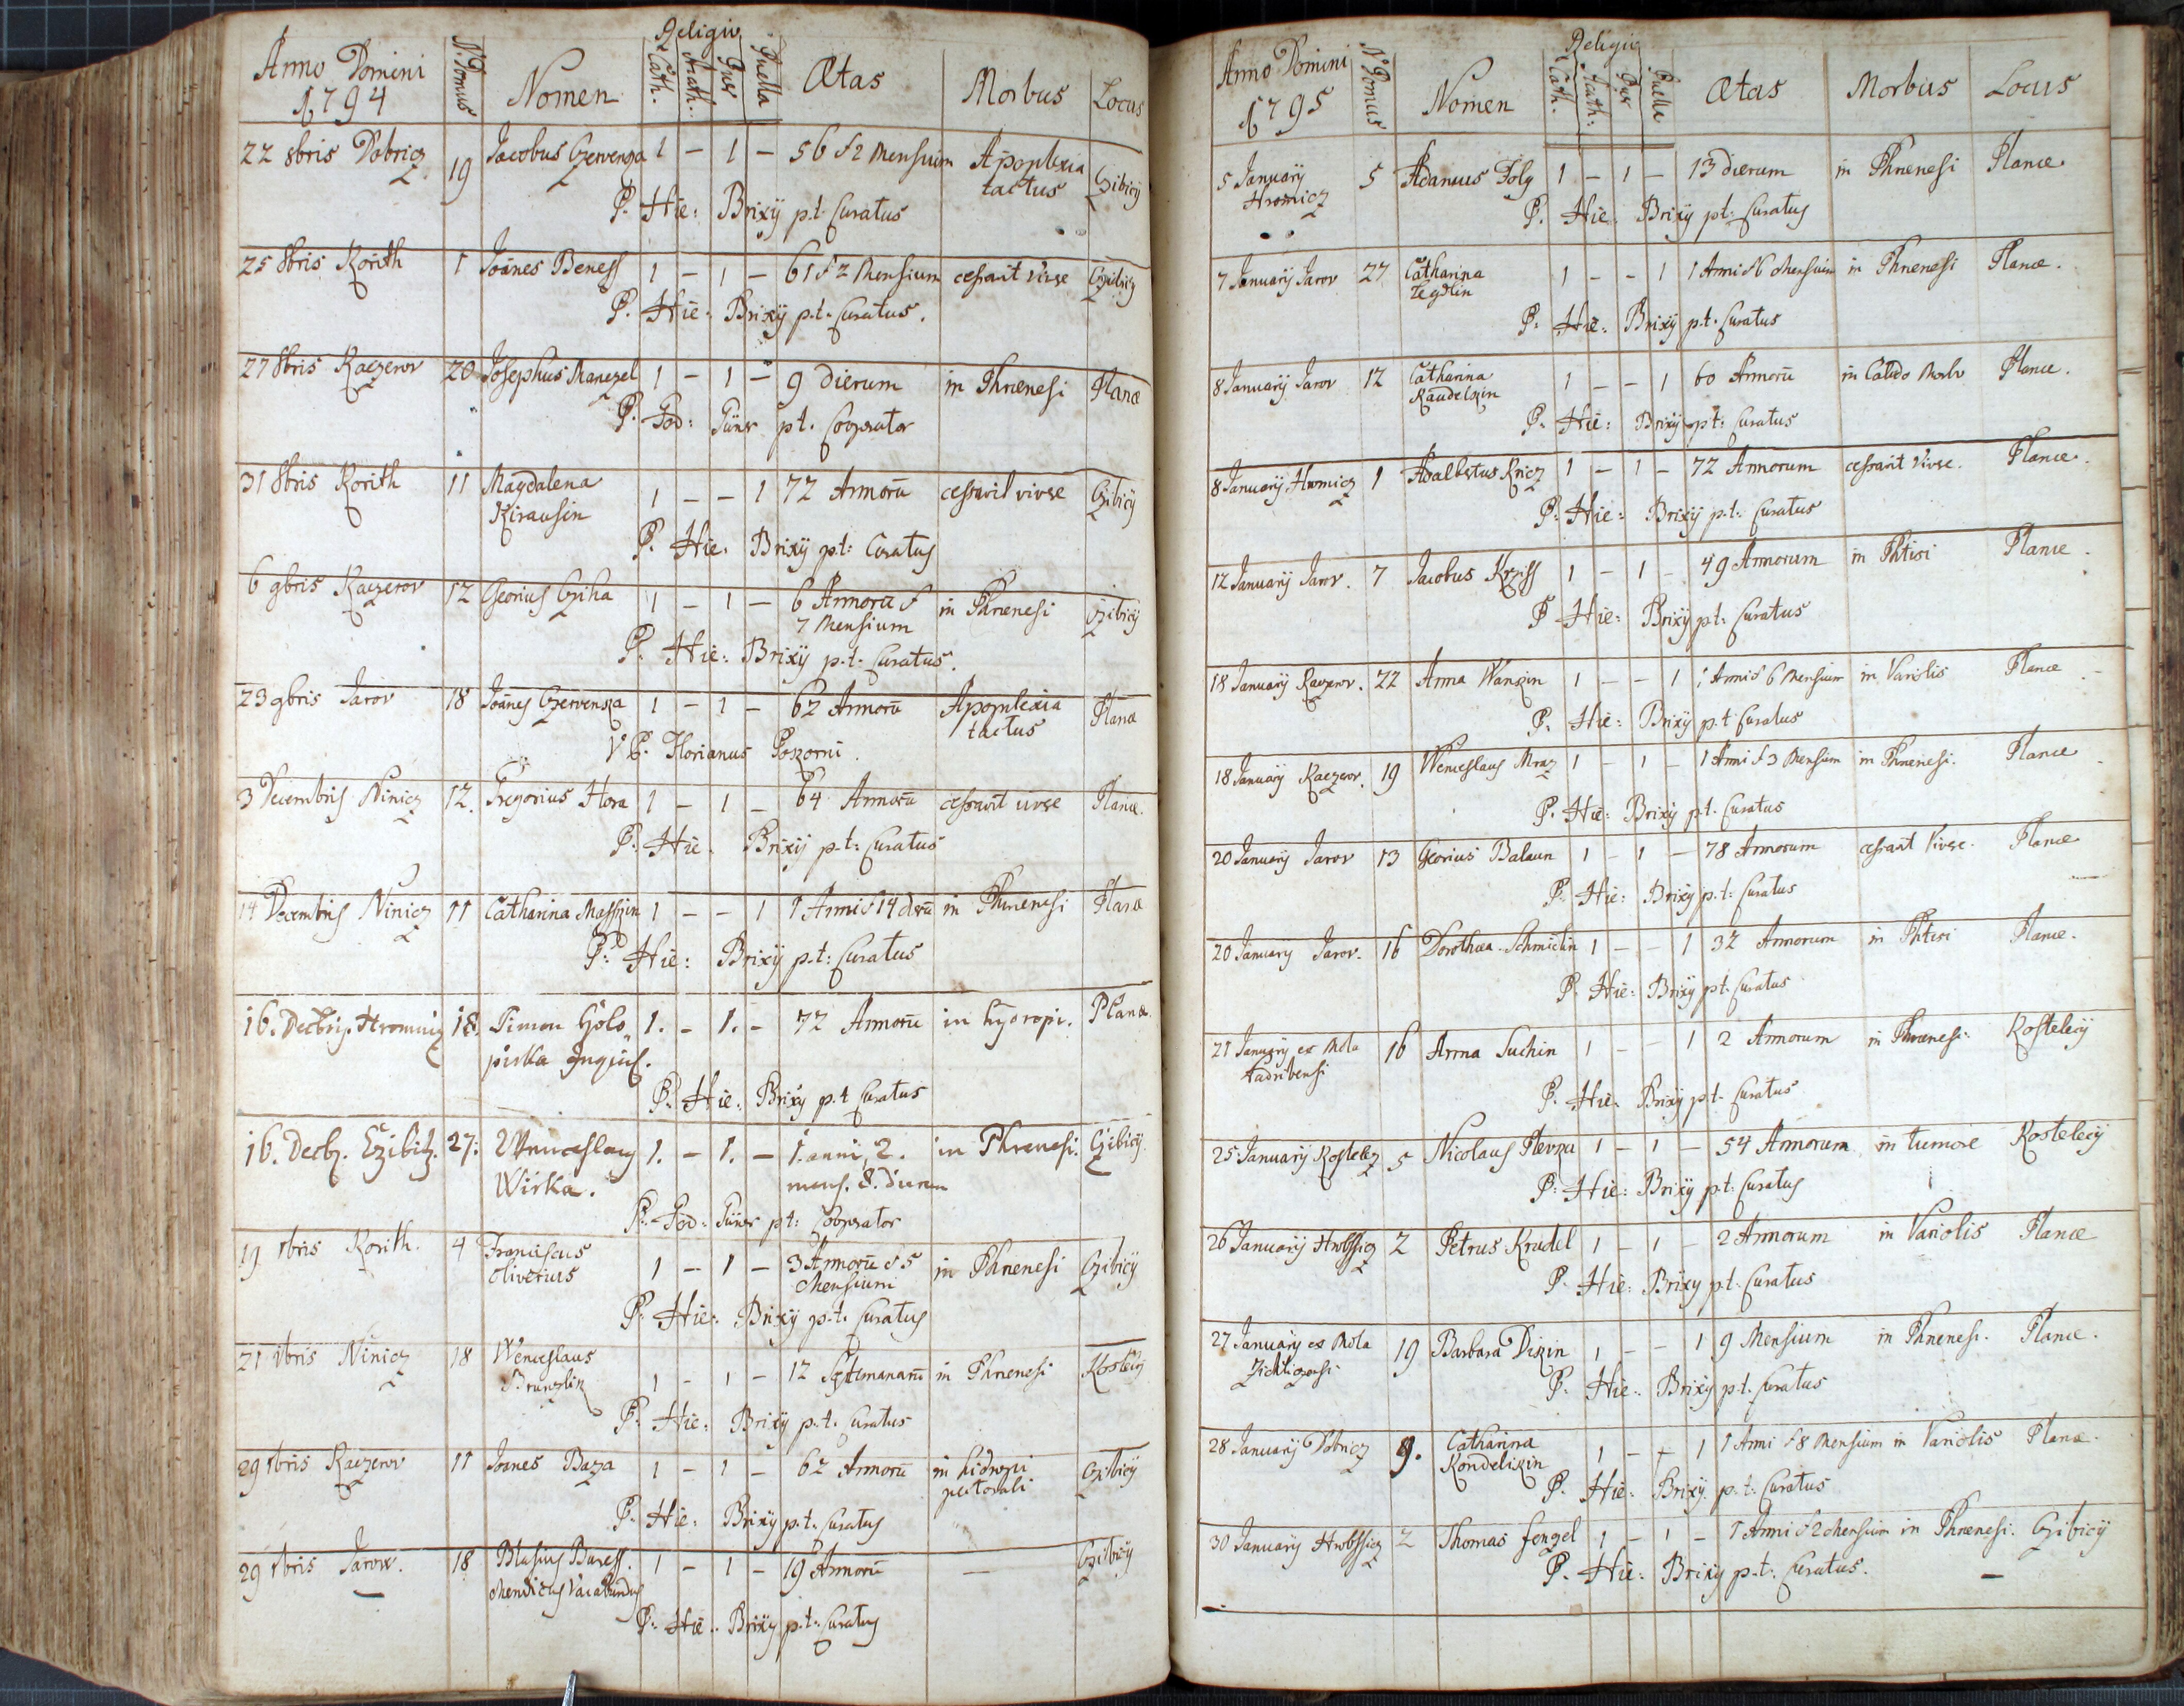 Anno Domini
1794
N. Domus
Nomen
Religio
Cath.
Acath.
Puer
Puella
Ætas
Morbus
Locus
22 8bris Dobricz 19 Jacobus Czervenga 1 – 1 – 56 & 2 Mensium Apoplexia
tactus Czibicÿ
P. Hie: Brixÿ p.t. Curatus
25 8bris Korith 1 Joānes Beness 1 – 1 – 61 & 2 Mensium cessavit vivere Czibicÿ
P. Hie: Brixÿ p.t. Curatus.
27 8bris Kaczerov 20 Josephus Manczel 1 – 1 – 9 dierum in Phrenesi Planæ
P. God: p.t. Cooperator
31 8bris Korith 11 Magdalena 1 – – 1 72 Annorū cessavit vivere Czibicÿ
Kirausin
P. Hie: Brixÿ p.t: Curatus
6 9bris Kaczerov 12 Georius Cziha 1 – 1 – 6 Annorū & in Phrenesi Czibicÿ
7 Mensium
P. Hie: Brixÿ p.t. Curatus.
23 9bris Jarov 18 Joānes Czervenka 1 – 1 – 62 Annorū Apoplexia Planæ
tactus
V. P. Florianus Pokorni.
3 Decembris Ninicz 12. Gregorius Hora 1 – 1 – 64 Annorū cessavit vivere Planæ.
P. Hie. Brixÿ p.t: Curatus
14 Decembris Ninicz 11 Catharina Maschin 1 – – 1 1 Anni & 14 in Phrenesi Planæ
P: Hie: Brixÿ p.t: Curatus
16. Decbris. Hromnicz 18. Simon Holo 1. – 1. – 72 Annorū in hydropi. Planæ.
piska
P. Hie: Brixÿ p.t Curatus
16. Decb. Czibitz. 27: Wenceslaus 1. – 1. – 1. anni, 2. in Phrenesi. Czibicÿ.
Wirka. mens. 8. dierum
P. God: p.t: Cooperator
19 Xbris Korith. 4 Franciscus
Oliverius 1 – 1 – 3 Annorū & 5 in Phrenesi Czibicÿ
Mensium
P. Hie: Brixÿ p.t. Curatus
21 Xbris Ninicz 18 Wenceslaus
Brunzlik 1 – 1 – 12 Septimanarū in Phrenesi Kostelecÿ
P. Hie: Brixÿ p.t. Curatus
29 Xbris Kaczerov 11 Joānes Baza 1 – 1 – 62 Annorū in hidropi Czibicÿ
pectorali
P. Hie: Brixÿ p.t. Curatus
29 Xbris Jarow. 18 Blasius Baress. 1 – 1 – 19 Annorū – Czibicÿ
Mendicus Vacabundus
P. Hie: Brixÿ p.t: Curatus
Anno Domini
1795
N. Domus
Nomen
Religio
Cath.
Acath:
Puer
Puella
Ætas
Morbus
Locus
5 Januarÿ 5 Adamus Foly 1 – 1 – 13 dierum in Phrenesi Planæ.
Hromicz
P. Hie: Brixÿ p.t: Curatus
7 Januarÿ Jarov 27 Catharina 1 – – 1 1 Anni & 6 Mensium in Phrenesi Planæ.
Tegdlin
P. Hie: Brixÿ p.t. Curatus
8 Januarÿ Jarov 12 Catharina 1 – – 1 60 Annorū in Calido Morbo Planæ.
Kaudelkin
P. Hie: Brixÿ p.t: Curatus
8 Januarÿ Hromicz 1 Adalbertus Kricz 1 – 1 – 72 Annorum cessavit vivere. Planæ.
P: Hie: Brixÿ p.t: Curatus
12 Januarÿ Jarov. 7 Jacobus Krziss 1 – 1 – 49 Annorum in Phtisi Planæ.
P Hie: Brixÿ p.t: Curatus
18 Januarÿ Kaczerov. 22 Anna Wankin 1 – – 1 1 Anni & 6 Mensium in Variolis Planæ
P. Hie: Brixÿ p.t Curatus
18 Januarÿ Kaczerov. 19 Wenceslaus Mraz 1 – 1 – 1 Anni & 3 Mensium in Phrenesi. Planæ
P. Hie: Brixÿ p.t. Curatus
20 Januarÿ Jarov 13 Georius Balaun 1 – 1 – 78 Annorum cessavit vivere. Planæ
P. Hie: Brixÿ p.t: Curatus
20 Januarÿ Jarov. 16 Dorothæa Schmidin 1 – – 1 32 Annorum in Phtisi Planæ.
P. Hie: Brixÿ p.t: Curatus
21 Januarÿ ex Mola 16 Anna Suchin 1 – – 1 2 Annorum in Phrenesi. Kostelecÿ
P. Hie. Brixÿ p.t. Curatus
25 Januarÿ Kostelecz 5 Nicolaus Plevka 1 – 1 – 54 Annorum in tumore Kostelecÿ
P. Hie: Brixÿ p.t: Curatus
26 Januarÿ Hrobssicz 2 Petrus Krudel 1 – 1 – 2 Annorum in Variolis Planæ
P. Hie: Brixÿ p.t: Curatus
27 Januarÿ ex Mola 19 Barbara Dikin 1 – – 1 9 Mensium in Phrenesi. Planæ.
P. Hie: Brixÿ p.t. Curatus
28 Januarÿ Dobricz 9. Catharina 1 – – 1 1 Anni & 8 Mensium in Variolis Planæ.
Kondelikin
P. Hie: Brixÿ. p.t: Curatus
30 Januarÿ Hrobssicz 2 Thomas Fengel 1 – 1 – 1 Anni & 2 Mensium in Phrenesi. Czibicÿ
P. Hie: Brixÿ p.t: Curatus. –